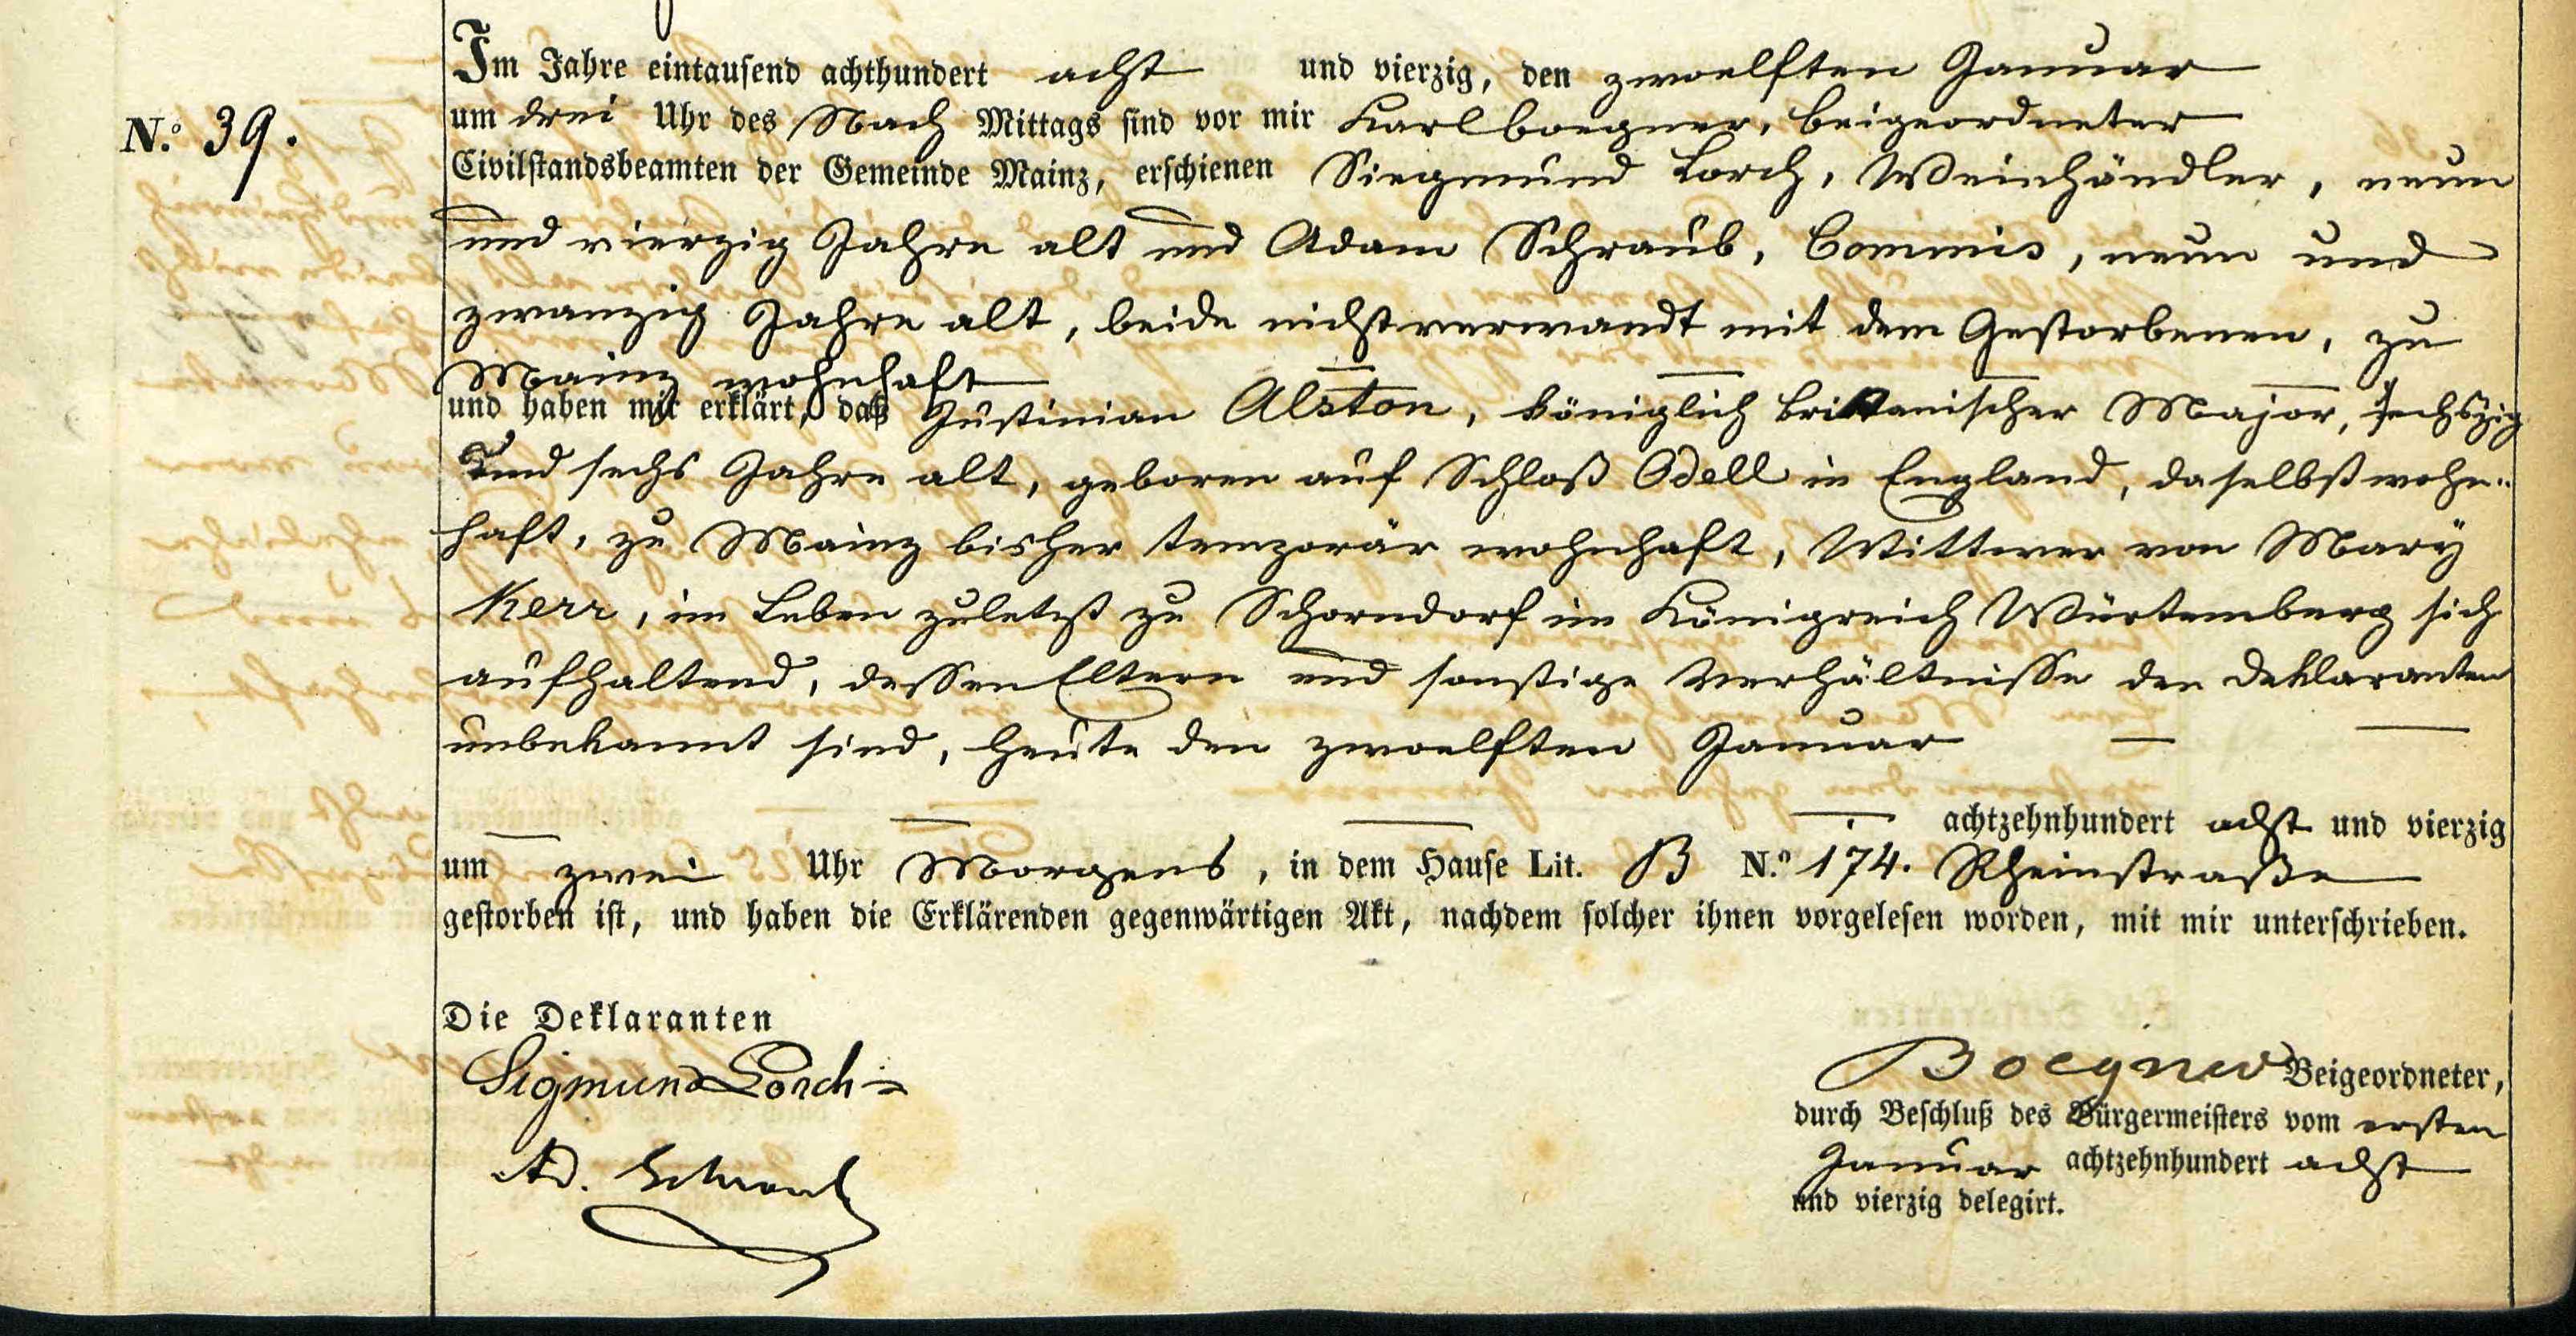 Im Jahre eintausend achthundert acht und vierzig, den zwoelften Januar
N.o 39.
um drei Uhr des Nach Mittags sind vor mir Karl Boegner, Beigeordneter
Civilstandsbeamten der Gemeinde Mainz, erschienen Siegmund Lorch, Weinhändler, neun
und vierzig Jahre alt und Adam Schraub, Commis, neun und
zwanzig Jahre alt, beide nicht verwandt mit dem Gestorbenen, zu
Mainz wohnhaft
und haben mir erklärt, daß Justinian Alston, königlich brittanischer Major, sechszig
und sechs Jahre alt, geboren auf Schloß Odell in England, daselbst wohn-
haft, zu Mainz bisher temporär wohnhaft, Wittwer von Mary
Kerr, im Leben zuletzt zu Schorndorf im Königreich Würtemberg sich
aufhaltend, dessen Eltern und sonstige Verhältnisse den Deklaranten
unbekannt sind, heute den zwoelften Januar
achtzehnhundert acht und vierzig
um zwei Uhr Morgens, in dem Hause Lit. B N.o 174. Rheinstraße
gestorben ist, und haben die Erklärenden gegenwärtigen Akt, nachdem solcher ihnen vorgelesen worden, mit mir unterschrieben.
Die Deklaranten
Sigmund Lorch
Ad. Schraub
Boegner Beigeordneter,
durch Beschluß des Bürgermeisters vom ersten
Januar achtzehnhundert acht
und vierzig delegirt.